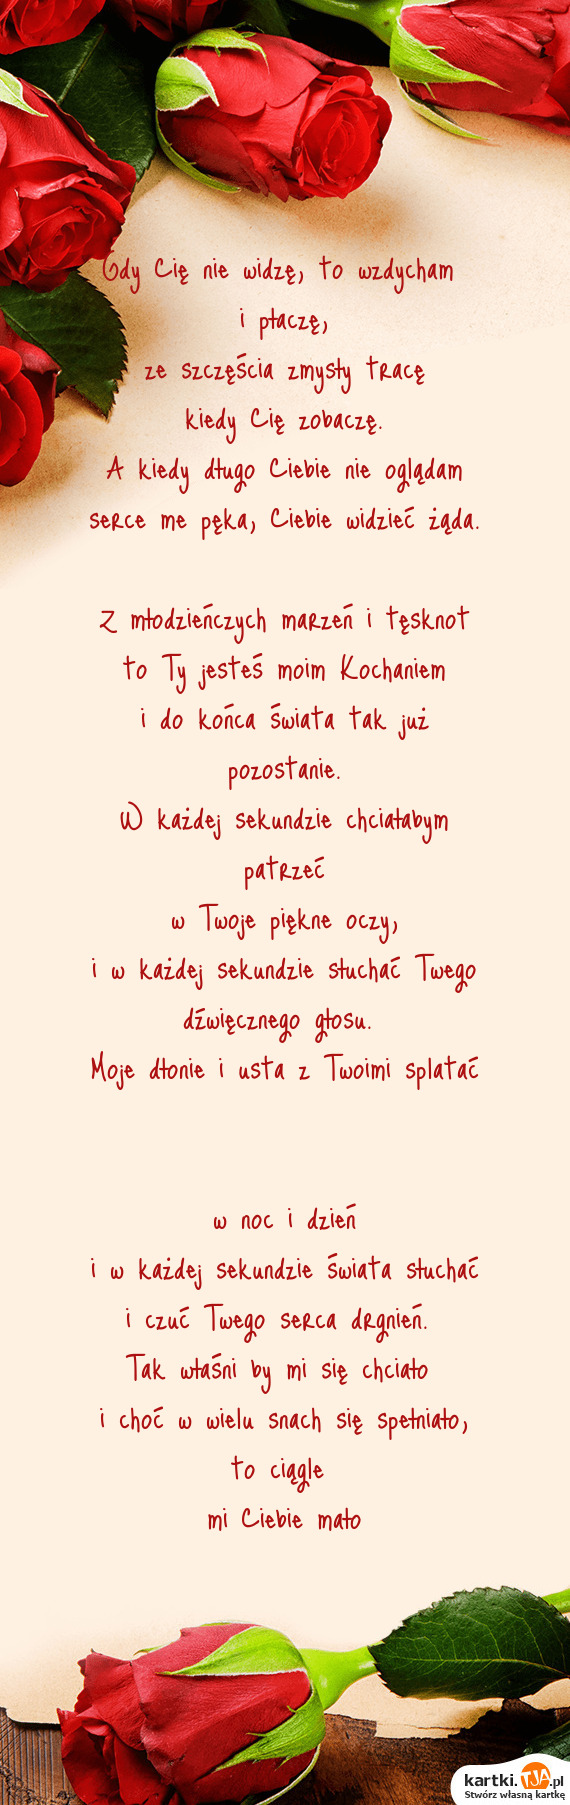 Gdy Cię nie widzę, to wzdycham
i płaczę,
ze szczęścia zmysły tracę
kiedy Cię zobaczę.
A kiedy długo Ciebie nie oglądam
serce me pęka, Ciebie widzieć żąda.
Z młodzieńczych marzeń i tęsknot
to Ty jesteś moim Kochaniem
i do końca świata tak już
pozostanie.
W każdej sekundzie chciałabym
patrzeć
w Twoje piękne oczy,
i w każdej sekundzie słuchać Twego
dźwięcznego głosu.
Moje dłonie i usta z Twoimi splatać
w noc i dzień
i w każdej sekundzie świata słuchać
i czuć Twego serca drgnień.
Tak właśni by mi się chciało
i choć w wielu snach się spełniało,
to ciągle
mi Ciebie mało
kartki.TJA.pl
Stwórz własną kartkę